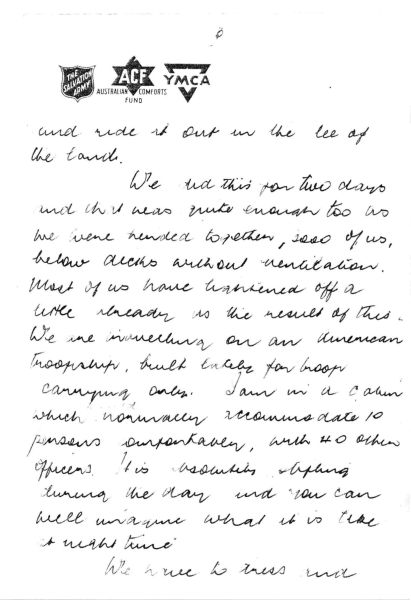 THE SALVATION ARMY
ACF
AUSTRALIAN COMFORTS FUND
YMCA
and ride it out in the lee of
the land.
We did this for two days
and it was quite enough too as
we were herded together, 3000 of us,
below decks without ventilation.
Most of us have tightened off a
little already as the result of this.
We are travelling on an American
troopship, built lately for troop
carrying only. I am in a cabin
which normally accommodate 10
persons comfortably, with 40 other
officers. It is absolutely stifling
during the day and you can
well imagine what it is like
at night time
We have to dress and